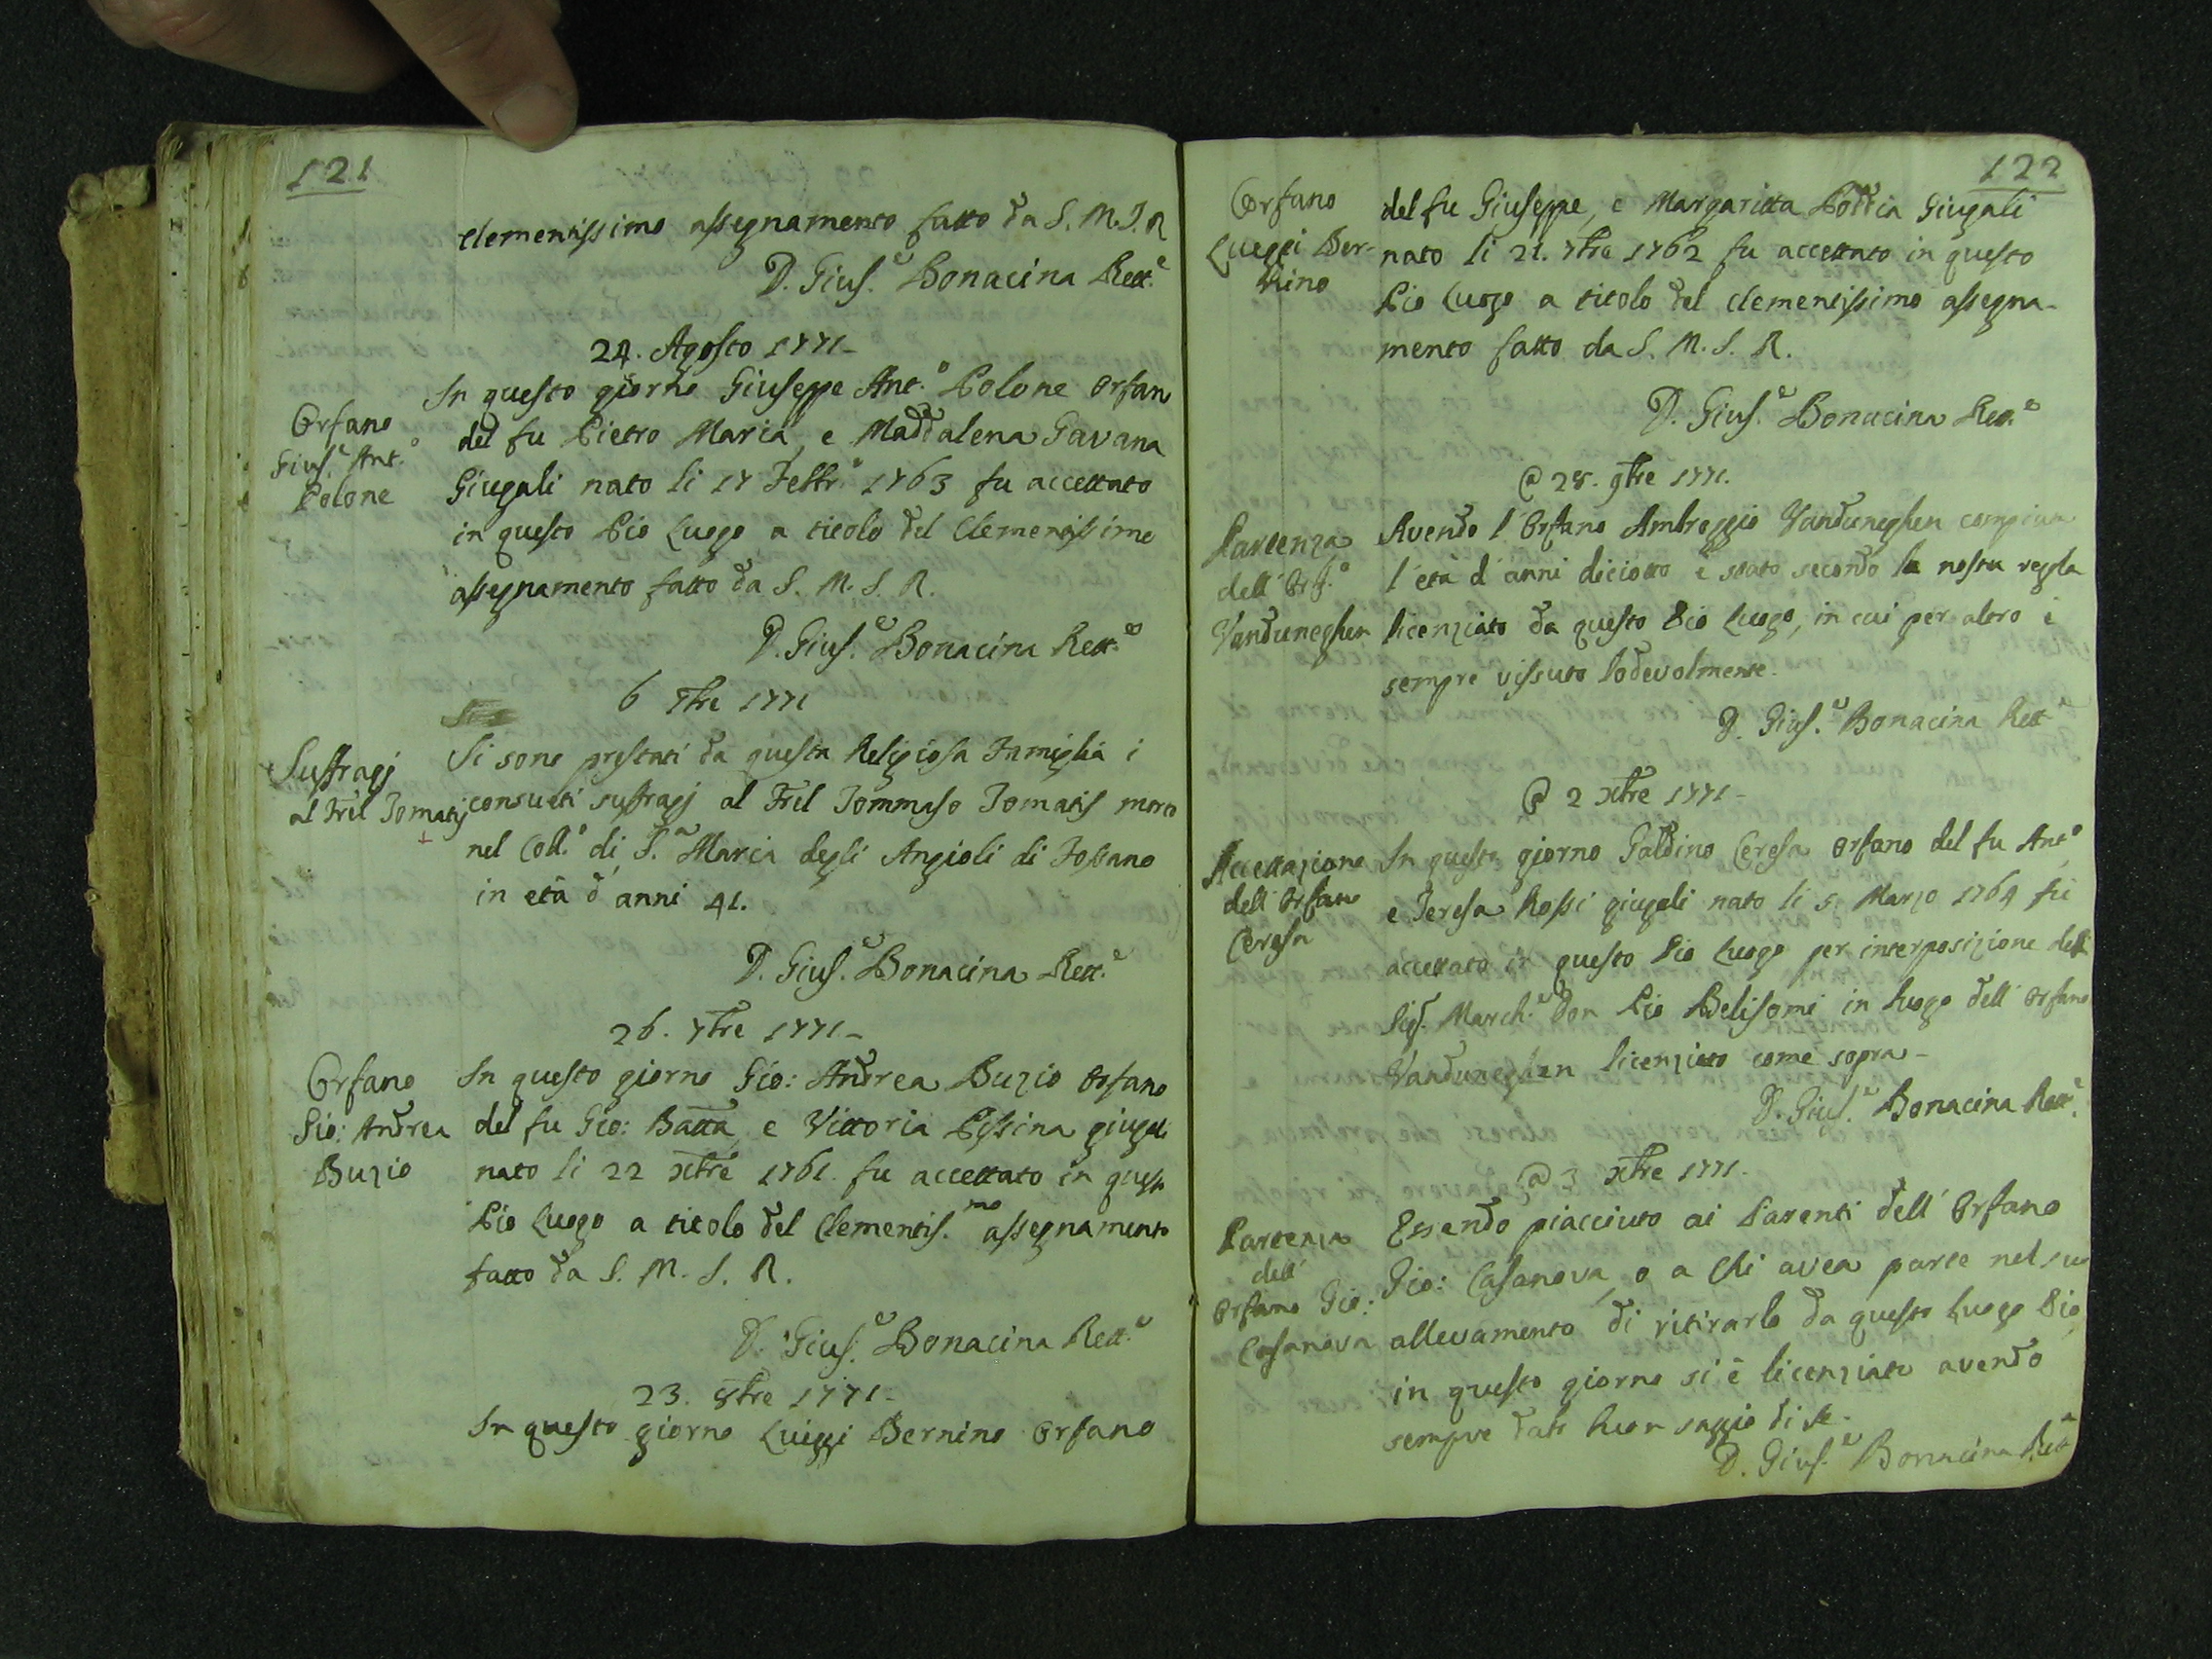 121
clementissimo assegnamento fatto da S. M. I. R
D. Gius.e Bonacina Rett.e
24. Agosto 1771-
Orfano
Gius.e Ant.o
Polone
In questo giorno Giuseppe Ant.o Polone orfan
del fu Pietro Maria, e Maddalena Gavana
Giugali nato li 17 Febbr.o 1763 fu accettato
in questo Pio Luogo a titolo del Clementissimo
assegnamento fatto da S. M. I. R.
D. Gius.e Bonacina Rett.e
6 7bre 1771
Suffragj
al Frel Tomatis
Si sono prestati da questa Religiosa Famiglia i
consueti suffragj al Frel Tommaso Tomatis morto
nel Coll.o di S.a Maria degli Angioli di Fossano
in età d'anni 41.
D. Gius.e Bonacina Rett.e
26. 7bre 1771-
Orfano
Gio: Andrea
Buzio
In questo giorno Gio: Andrea Buzio orfano
del fu Gio: Batta, e Vittoria Pissina giugali
nato li 22 Xbre 1761 fu accettato in questo
Pio Luogo a titolo del Clementis.mo assegnamento
fatto da S. M. I. R.
D. Gius.e Bonacina Rett.e
23. 8bre 1771-
In questo giorno Luiggi Bernino orfano
122
Orfano
Luiggi Ber-
nino
del fu Giuseppe, e Margaritta Giugali
nato li 21. 7bre 1762 fu accettato in questo
Pio Luogo a titolo del clementissimo assegna-
mento fatto da S. M. I. R.
D. Gius.e Bonacina Rett.e
@ 28. 9bre 1771.
Partenza
dell'Orf.o
Vanduneghen
Avendo l'Orfano Ambroggio Vanduneghen compiuta
l'età d'anni diciotto è stato secondo la nostra regola
licenziato da questo Pio Luogo, in cui per altro è
sempre vissuto lodevolmente.
D. Gius.e Bonacina Rett.e
@ 2 Xbre 1771-
Accettazione
dell'Orfano
Ceresa
In questo giorno Galdino Ceresa orfano del fu Ant.o
e Teresa Rossi giugali nato li 5 Marzo 1764 fu
accettato in questo Pio Luogo per interposizione dell
Sig.r March.e Don Pio Belisomi in luogo dell'orfano
Vanduneghen licenziato come sopra-
D. Gius.e Bonacina Rett.e
@ 3 Xbre 1771.
Partenza
dell'
Orfano Gio:
Casanova
Essendo piacciuto ai Parenti dell'Orfano
Gio: Casanova, o a chi avea parte nel suo
allevamento di ritirarlo da questo Luogo Pio
in questo giorno si è licenziato avendo
sempre dato buon saggio di se.
D. Gius.e Bonacina Rett.e